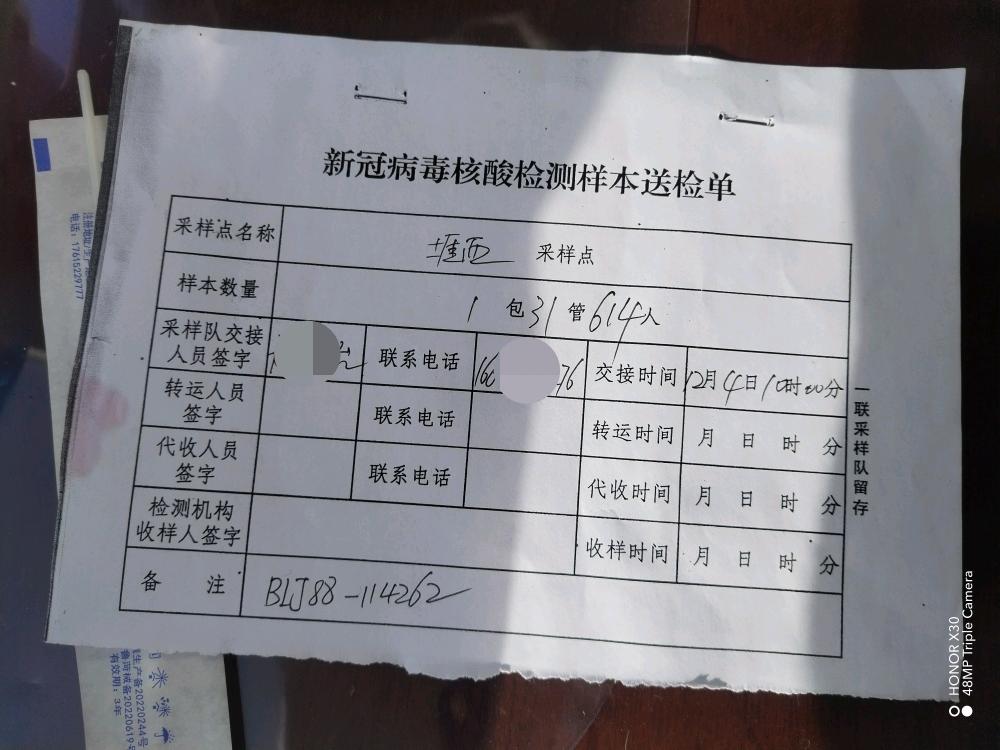 新冠病毒核酸检测样本送检单
采样点名称 采样点
样本数量 1 包 31 管 614 人
采样队交接人员签字 联系电话 166 76 交接时间 12月4日10时00分
转运人员签字 联系电话 转运时间 月 日 时 分
代收人员签字 联系电话 代收时间 月 日 时 分
检测机构收样人签字 收样时间 月 日 时 分
备 注 BLJ88-114262
一联采样队留存
电话：17615229777
生产备20220244号
鲁菏械备20220619号
有效期：3年
HONOR X30
48MP Triple Camera